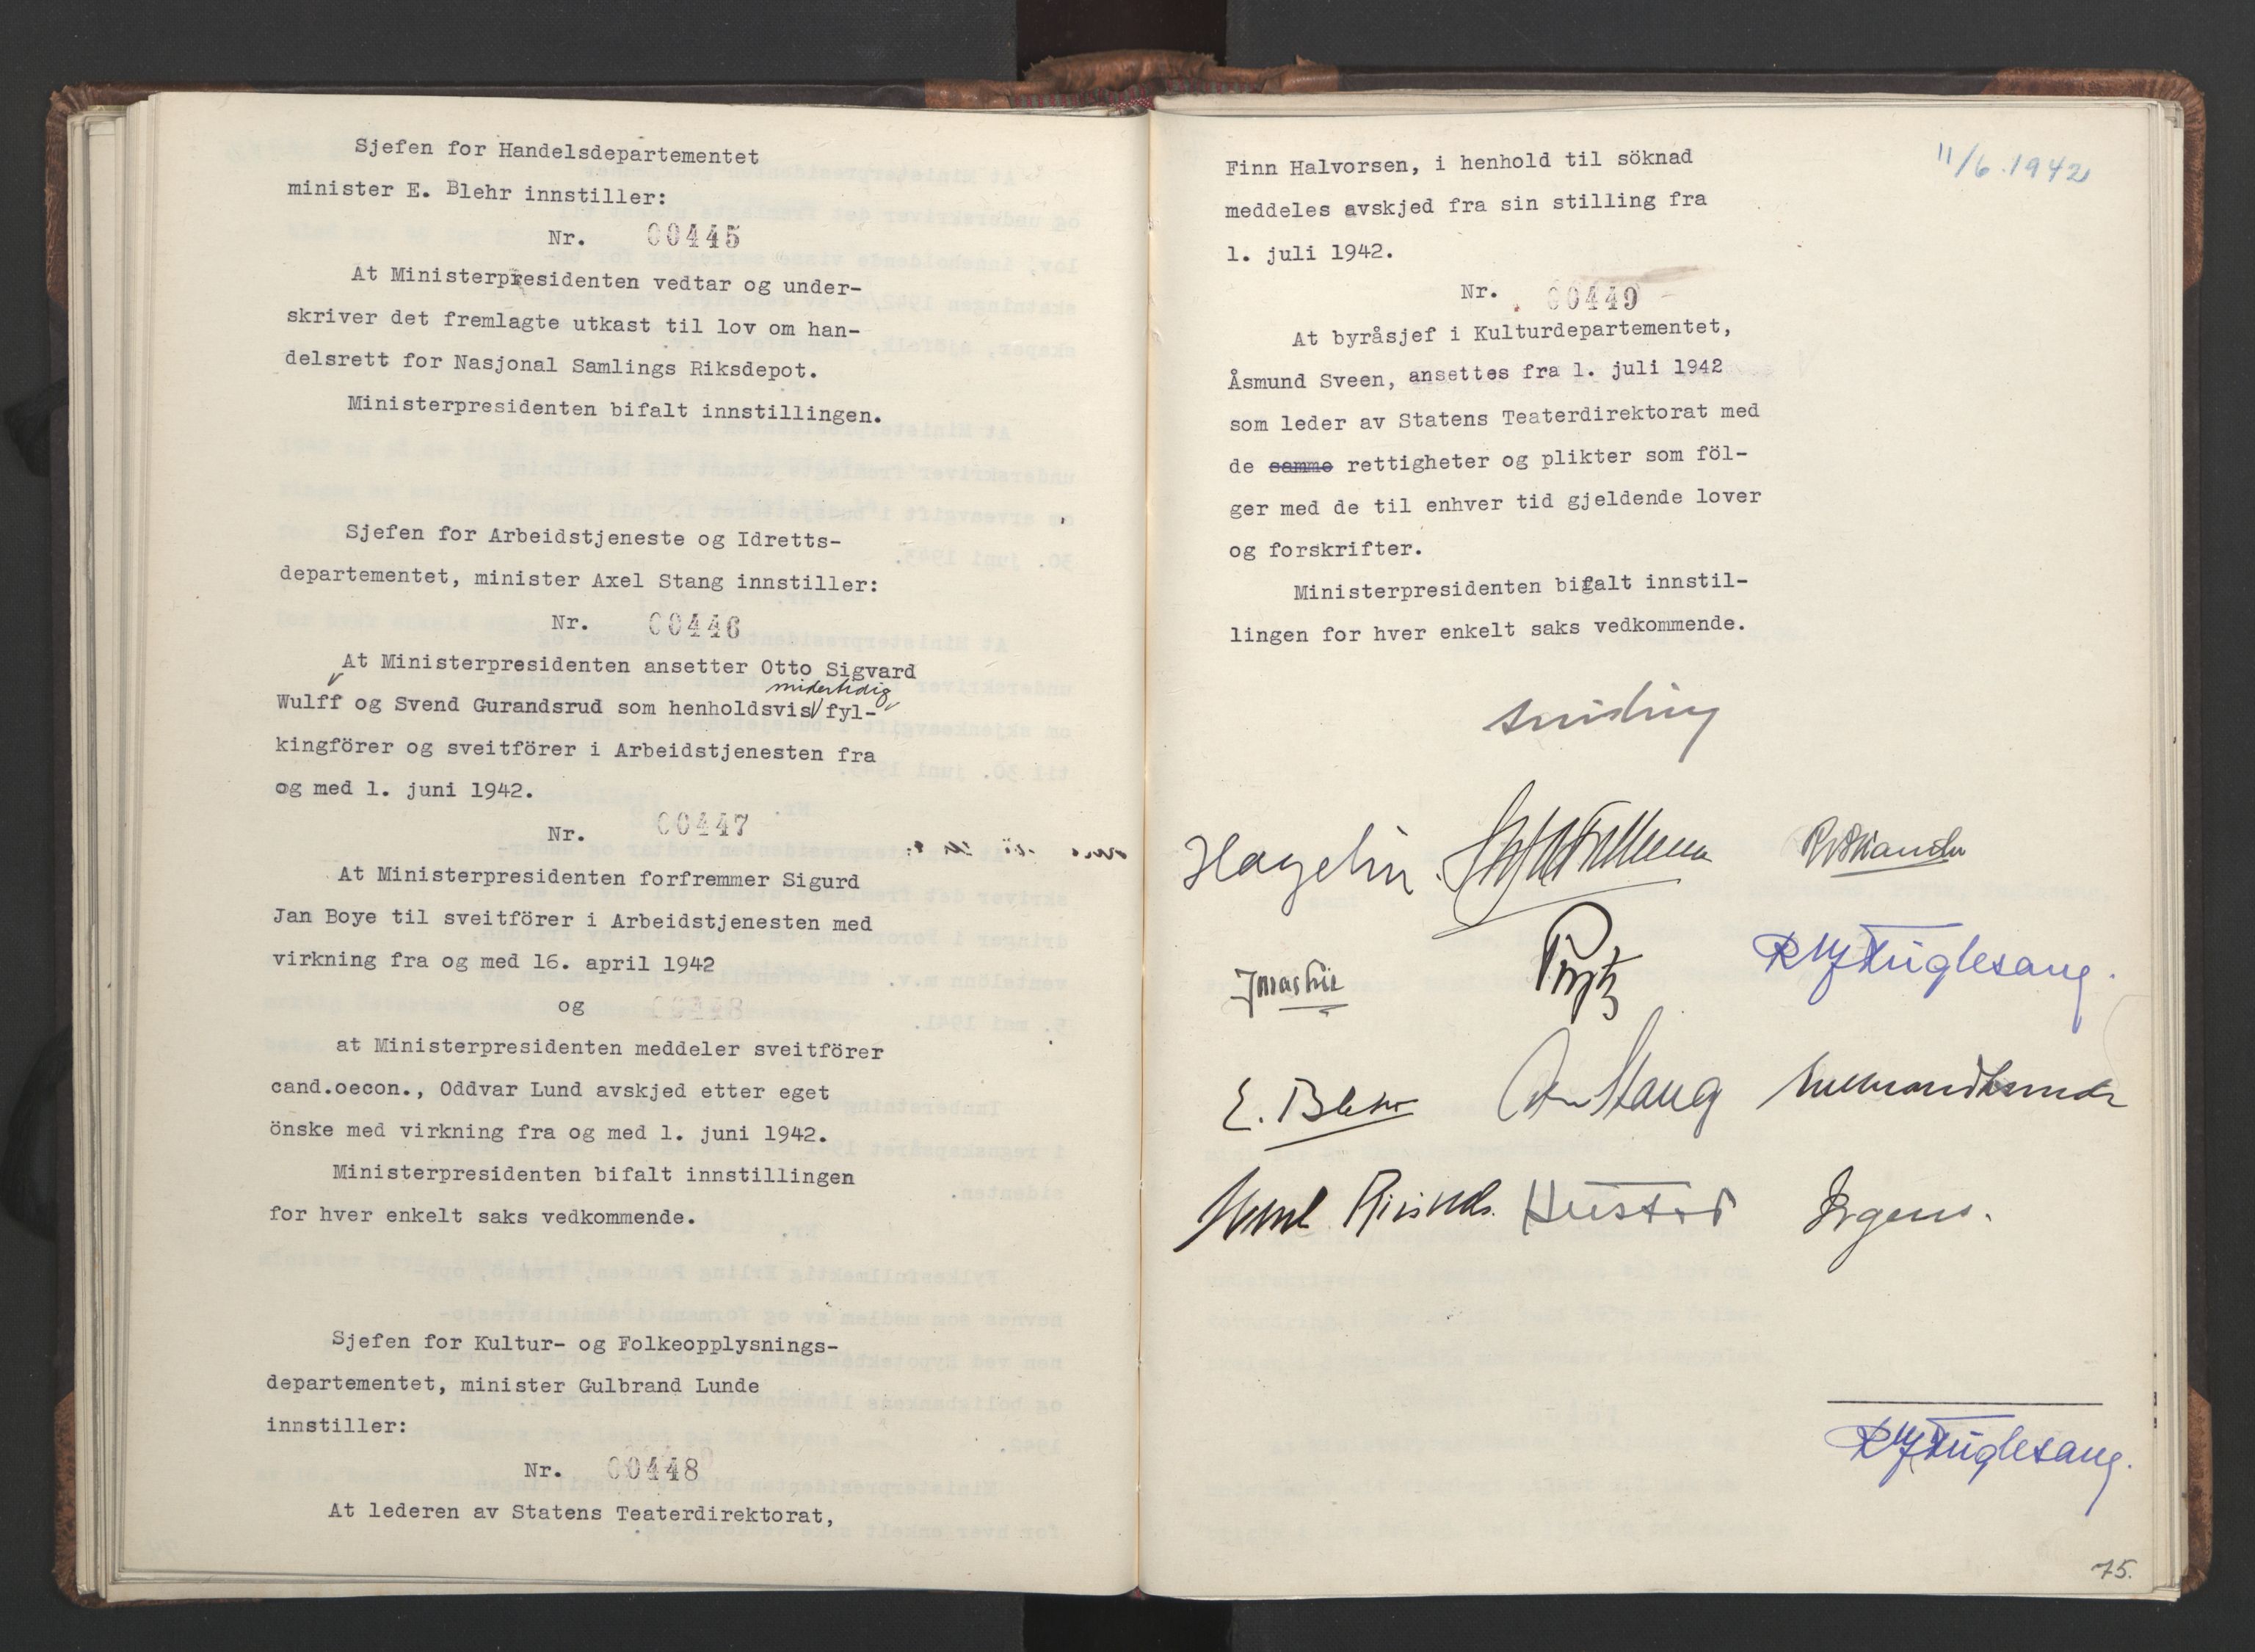 Sjefen for Handelsdepartementet
minister E. Blehr innstiller:
Nr. 00445
At Ministerpresidenten vedtar og under-
skriver det fremlagte utkast til lov om han-
delsrett for Nasjonal Samlings Riksdepot.
Ministerpresidenten bifalt innstillingen.
Sjefen for Arbeidstjeneste og Idretts-
departementet, minister Axel Stang innstiller:
Nr. 00446
At Ministerpresidenten ansetter Otto Sigvard
midertidig
Wulff og Svend Gurandsrud som henholdsvis fyl-
kingförer og sveitförer i Arbeidstjenesten fra
og med 1. juni 1942.
Nr. 00447
At Ministerpresidenten forfremmer Sigurd
Jan Boye til sveitförer i Arbeidstjenesten med
virkning fra og med 16. april 1942
og 00448
at Ministerpresidenten meddeler sveitförer
cand.oecon., Oddvar Lund avskjed etter eget
önske med virkning fra og med 1. juni 1942.
Ministerpresidenten bifalt innstillingen
for hver enkelt saks vedkommende.
Sjefen for Kultur- og Folkeopplysnings-
departementet, minister Gulbrand Lunde
innstiller:
Nr. 00448
At lederen av Statens Teaterdirektorat,
11/6.1942
Finn Halvorsen, i henhold til söknad
meddeles avskjed fra sin stilling fra
1. juli 1942.
Nr. 00449
At byråsjef i Kulturdepartementet,
Åsmund Sveen, ansettes fra 1. juli 1942
som leder av Statens Teaterdirektorat med
de samme rettigheter og plikter som föl-
ger med de til enhver tid gjeldende lover
og forskrifter.
Ministerpresidenten bifalt innstil-
lingen for hver enkelt saks vedkommende.
Quisling
Hagelin R Skancke
Prytz R J Fuglesang.
E. Blehr Axel Stang Gulbrand Lunde
Sverre Riisnæs. Hustad Irgens.
R J Fuglesang.
75.